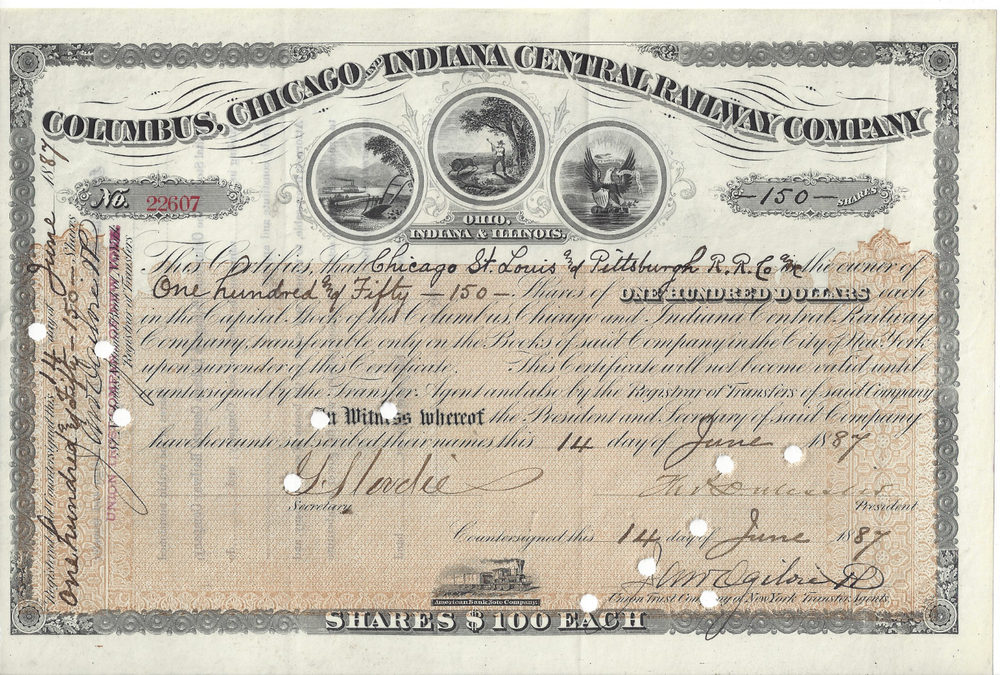 COLUMBUS, CHICAGO AND INDIANA CENTRAL RAILWAY COMPANY
No. 22607
—150— SHARES
OHIO,
INDIANA & ILLINOIS.
This Certifies, that Chicago St. Louis and Pittsburgh R. R. Co the owner of
One hundred and Fifty — 150 — Shares of ONE HUNDRED DOLLARS each
in the Capital Stock of the Columbus, Chicago and Indiana Central Railway
Company, transferable only on the Books of said Company in the City of New York
upon surrender of this Certificate. This Certificate will not become valid until
countersigned by the Transfer Agent and also by the Registrar of Transfers of said Company
In Witness whereof the President and Secretary of said Company
have hereunto subscribed their names this 14 day of June 1887
Secretary.
President
Countersigned this 14 day of June 1887
Union Trust Company of New York Transfer Agents
American Bank Note Company.
SHARES $100 EACH
Registered and Countersigned this 14 day of June 1887
One hundred and Fifty — 150 — Shares
Registrar of Transfers
UNION TRUST COMPANY OF NEW YORK